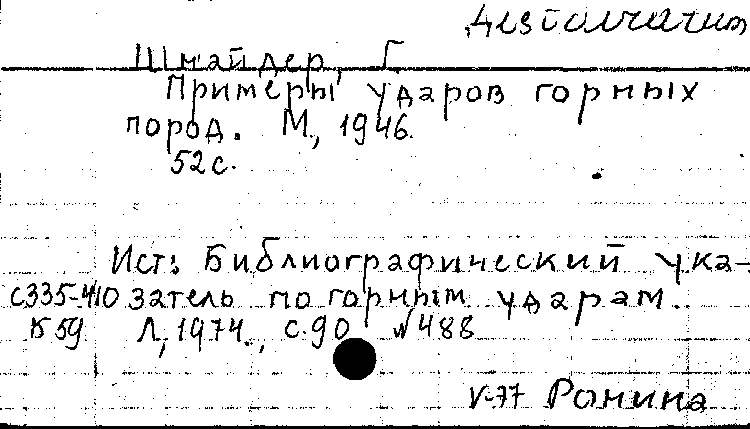 Шнайдер, Г.
Примеры ударов горных
пород. М., 1946.
52с.
Ист: Библиографический ука-
С335-410 затель по горным ударам.
К59 Л, 1974., с.90 №488
V-77 Ронина